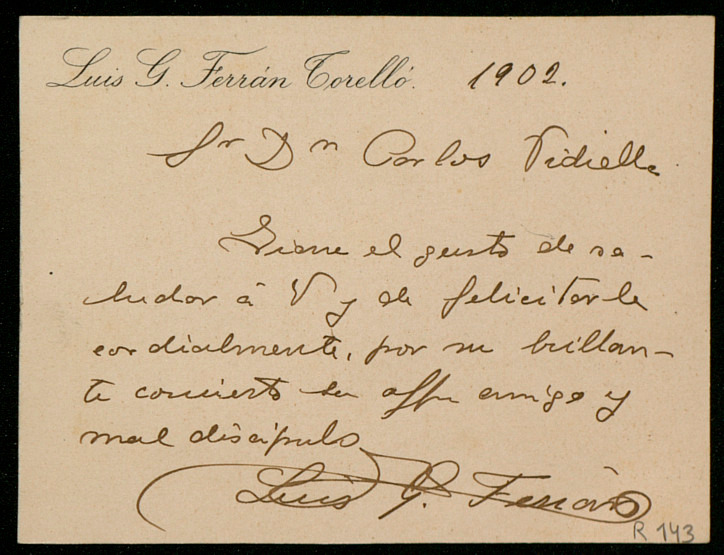 Luis G. Ferrán Torelló. 1902.
Sr Dn Carlos Vidiella
Tiene el gusto de sa-
ludar á V y de felicitarle
cordialmente, por su brillan-
te concierto su affm amigo y
mal discípulo
Luis G. Ferrán
R 143